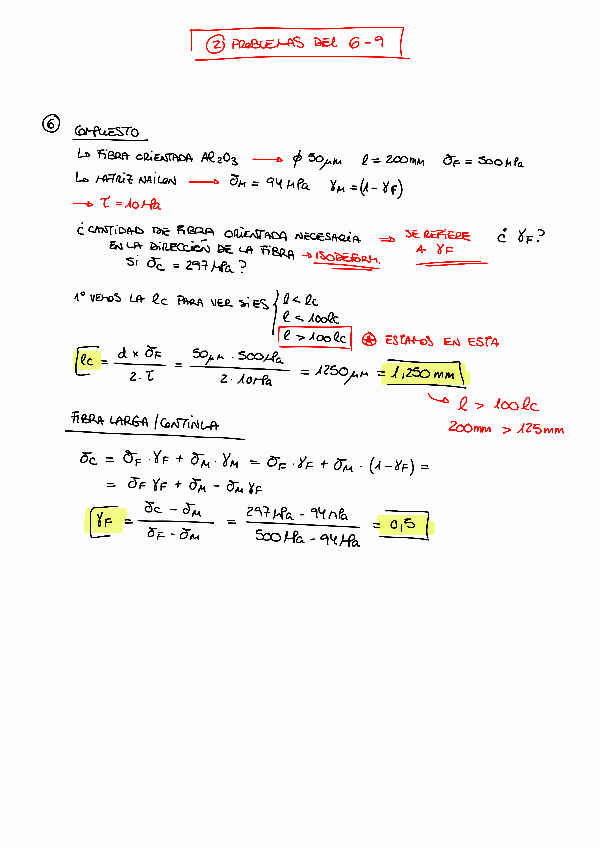 ② PROBLEMAS DEL 6-9
⑥ COMPUESTO
↳ FIBRA ORIENTADA Al2O3 → ϕ 50μm l = 200mm σF = 500MPa
↳ MATRIZ NAILON → σM = 94 MPa γM = (1 - γF)
→ τ = 10 MPa
¿CANTIDAD DE FIBRA ORIENTADA NECESARIA ⇒ SE REFIERE ¿ γF?
EN LA DIRECCIÓN DE LA FIBRA → ISODEFORM. A γF
SI σC = 297 MPa?
1º VEMOS LA lc PARA VER SI ES { l < lc
l < 100lc
l > 100lc ⊛ ESTAMOS EN ESTA
lc = d × σF / 2·τ = 50μm · 500MPa / 2·10MPa = 1250μm = 1,250 mm
→ l > 100lc
200mm > 125mm
FIBRA LARGA/CONTINUA
σC = σF · γF + σM · γM = σF · γF + σM · (1-γF) =
= σF γF + σM - σM γF
γF = σC - σM / σF - σM = 297MPa - 94MPa / 500MPa - 94MPa = 0,5